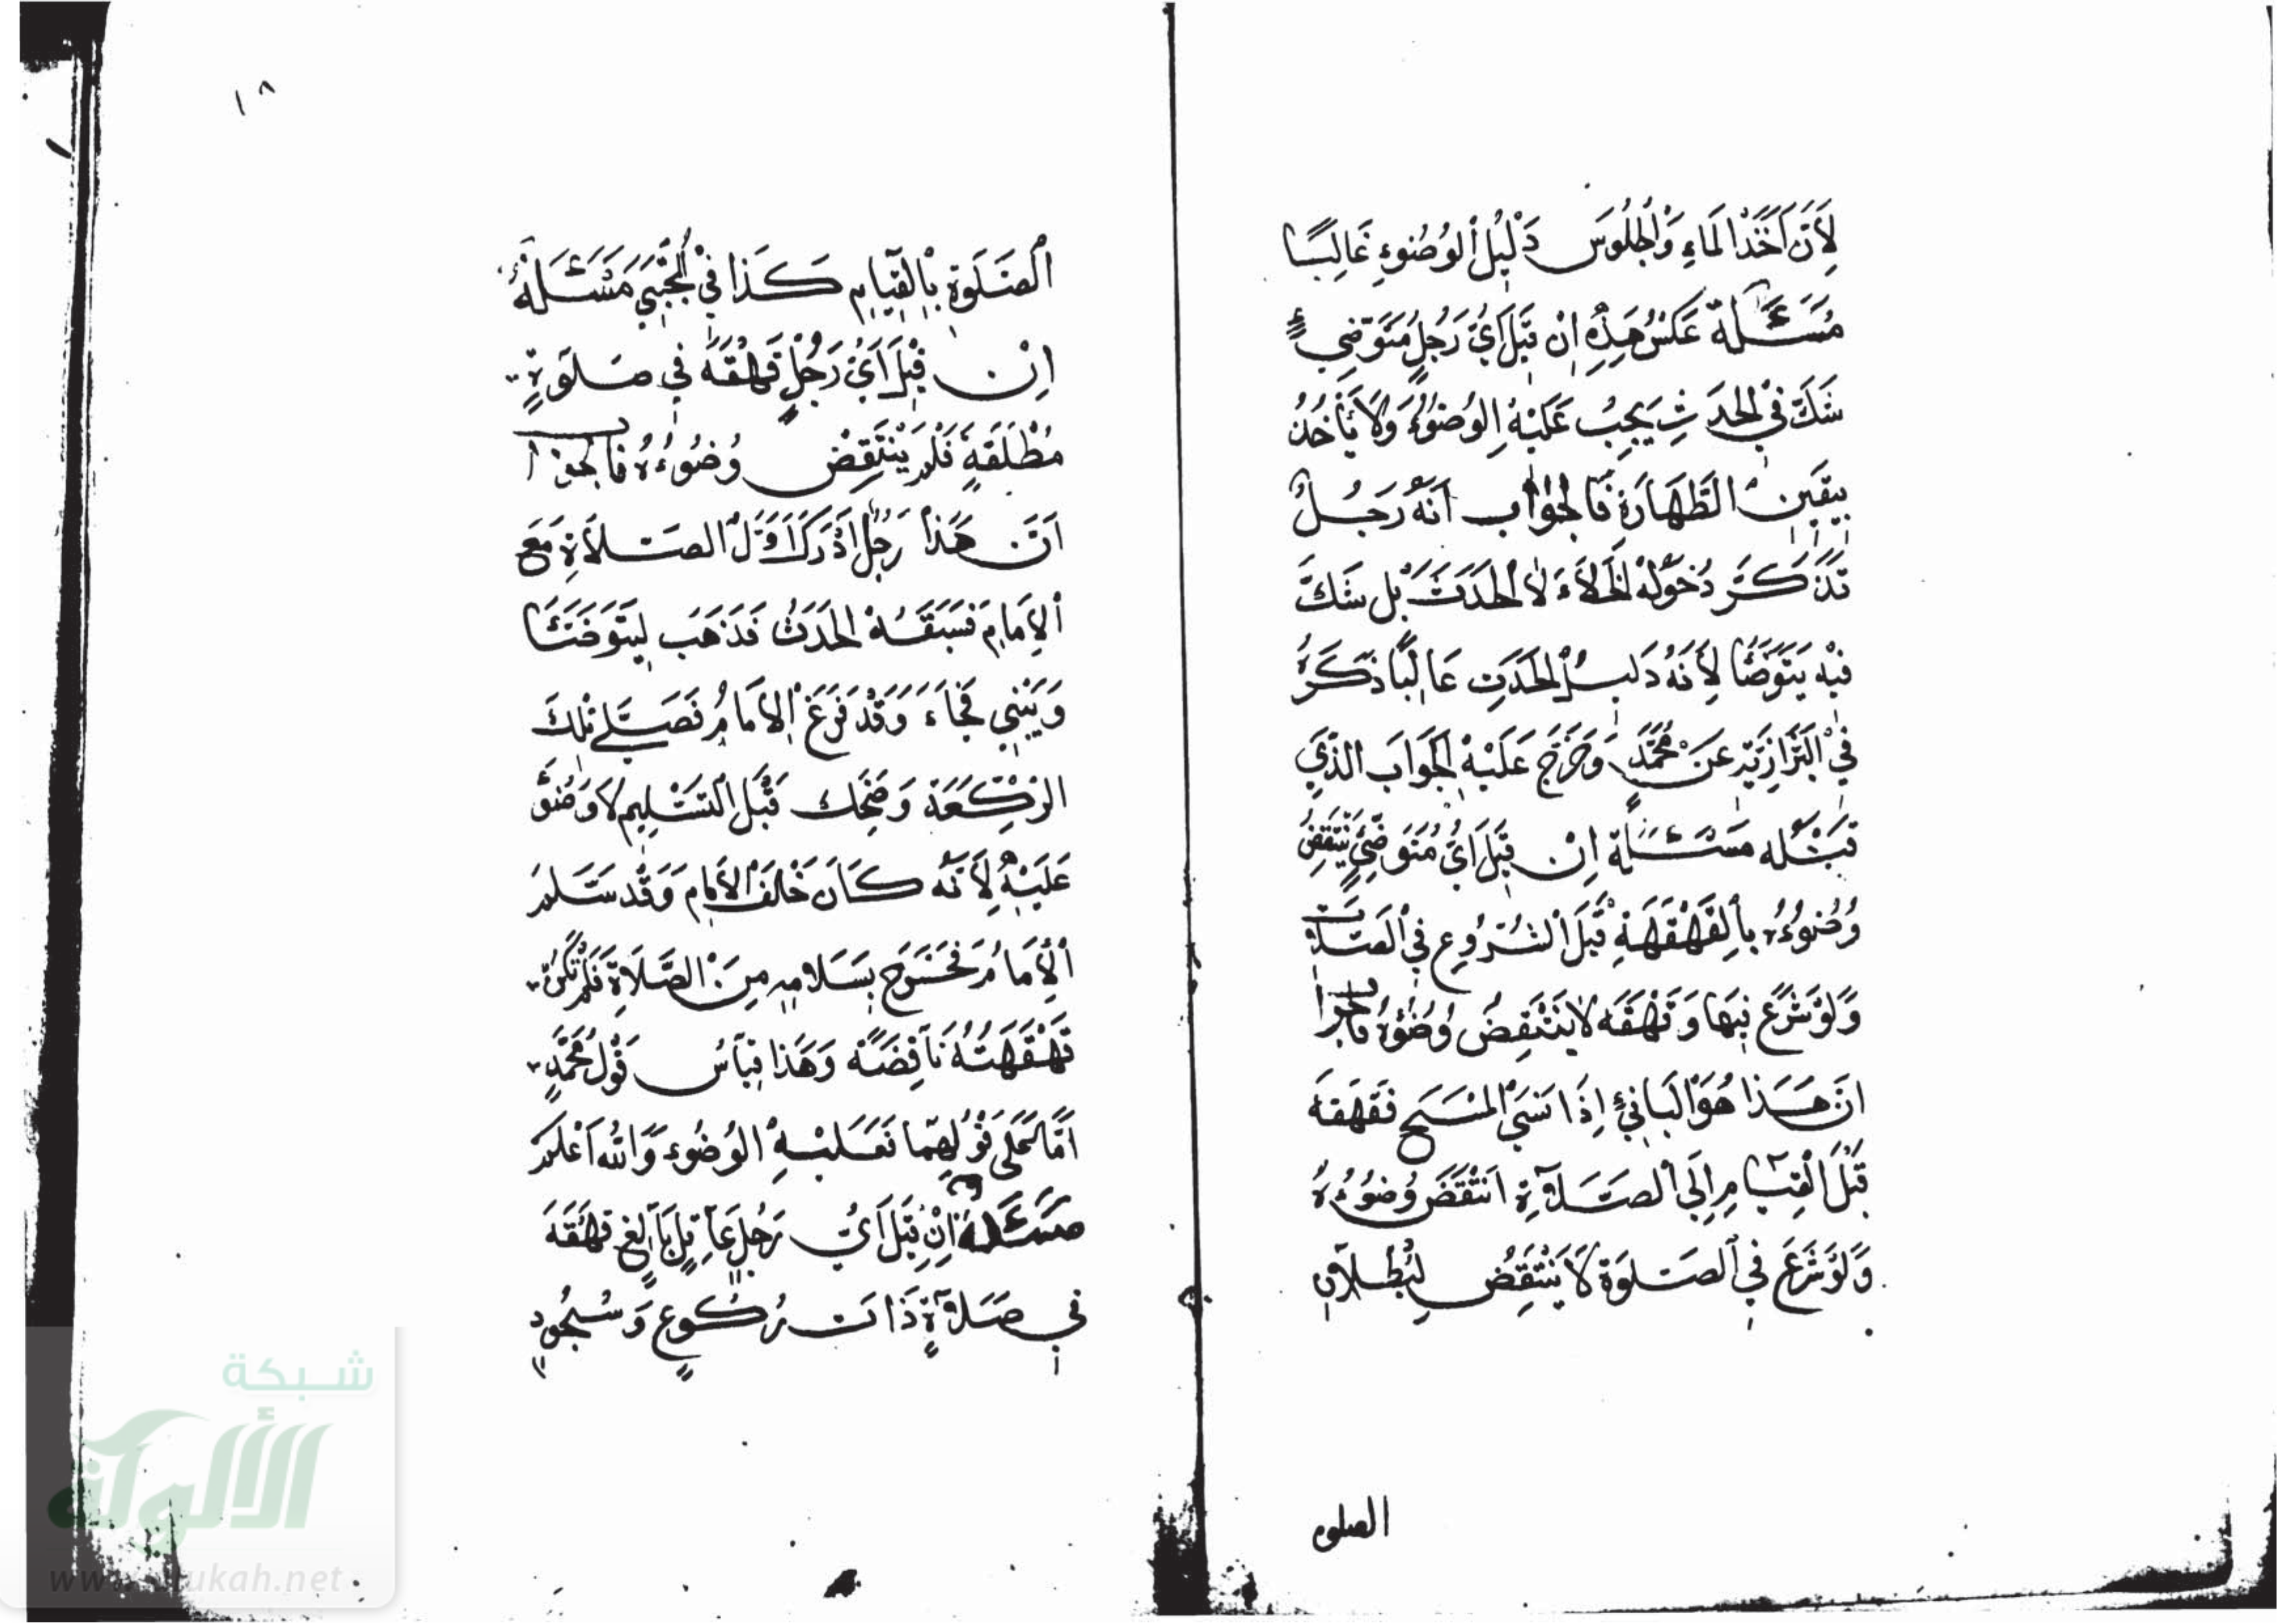 لِأَنَّ أَخْذَ الْمَاءِ وَالْجُلُوسَ دَلِيلُ الْوُضُوءِ غَالِبًا
مَسْئَلَة عَكْسُ هَذِهِ إِنْ قِيلَ أَيُّ رَجُلٍ مُتَوَضِّئٍ
شَكَّ فِي الْحَدَثِ يَجِبُ عَلَيْهِ الْوُضُوءُ وَلَا يَأْخُذُ
بِيَقِينِ الطَّهَارَةِ فَالْجَوَاب أَنَّهُ رَجُلٌ
تَذَكَّرَ دُخُولَهُ الْخَلَاءَ لَا الْحَدَثَ بَل شَكَّ
فِيهِ يَتَوَضَّأُ لِأَنَّهُ دَلِيلُ الْحَدَثِ غَالِبًا ذَكَرَهُ
فِي الْبَزَّازِيَّةِ عَنْ مُحَمَّدٍ وَخَرَجَ عَلَيْهِ الْجَوَابَ الَّذِي
قَبْلَه مَسْئَلَة إِنْ قِيلَ أَيُّ مُتَوَضِّئٍ يَنْتَقِضُ
وُضُوءُهُ بِالْقَهْقَهَةِ قَبْلَ الشُّرُوعِ فِي الصَّلَاة
وَلَوْ شَرَعَ فِيهَا وَقَهْقَهَ لَا يَنْتَقِضُ وُضُوءُهُ فَالْجَوَاب
أَنَّ هَذَا هُوَ الْبَانِئُ إِذَا نَسِيَ الْمَسْحَ فَقَهْقَهَ
قَبْلَ الْقِيَامِ إِلَى الصَّلَاةِ انْتَقَضَ وُضُوءُهُ
وَلَوْ شَرَعَ فِي الصَّلوةِ لَا يَنْتَقِضُ لِبُطْلَانِ
الصلوه
١٨
الصَّلَوةِ بِالْقِيَامِ كَذَا فِي الْمُجْتَبَى مَسْئَلَةٌ
إِنْ قِيلَ أَيُّ رَجُلٍ قَهْقَهَ فِي صَلَوةٍ
مُطْلَقَةٍ فَلَمْ يَنْتَقِضْ وُضُوءُهُ فَالْجَوَاب
أَنَّ هَذَا رَجُلٌ أَدْرَكَ أَوَّلَ الصَّلَاةِ مَعَ
الْإِمَامِ فَسَبَقَهُ الْحَدَثُ فَذَهَبَ لِيَتَوَضَّأَ
وَيَبْنِي فَجَاءَ وَقَدْ فَرَغَ الْإِمَامُ فَصَلَّى تِلْكَ
الرَّكْعَةَ وَضَحِكَ قَبْلَ التَّسْلِيمِ لَا وُضُوءَ
عَلَيْهِ لِأَنَّهُ كَانَ خَلْفَ الْإِمَامِ وَقَدْ سَلَّمَ
الْإِمَامُ فَخَرَجَ بِسَلَامِهِ مِنَ الصَّلَاةِ فَلَمْ تَكُنْ
قَهْقَهَتُهُ نَاقِضَةً وَهَذَا قِيَاسُ قَوْلِ مُحَمَّدٍ
أَمَّا عَلَى قَوْلِهِمَا فَعَلَيْهِ الْوُضُوءُ وَاللهُ أَعْلَمُ
مَسْئَلَة إِنْ قِيلَ أَيُّ رَجُلٍ عَاقِلٍ بَالِغٍ قَهْقَهَ
فِي صَلَاةٍ ذَاتِ رُكُوعٍ وَسُجُودٍ
شبكة
الألوكة
www.alukah.net